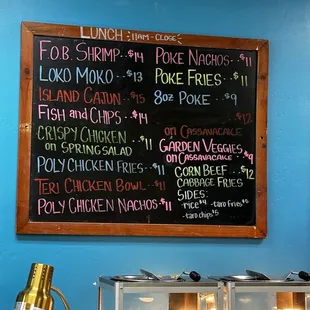 LUNCH 11AM-CLOSE
F.O.B. SHRIMP..$14
LOKO MOKO..$13
ISLAND CAJUN..$15
FISH AND CHIPS..$14
CRISPY CHICKEN
ON SPRING SALAD..$11
POLY CHICKEN FRIES..$11
TERI CHICKEN BOWL..$11
POLY CHICKEN NACHOS..$11
POKE NACHOS..$11
POKE FRIES..$11
8oz POKE..$9
$12
ON CASSAVACAKE
GARDEN VEGGIES
ON CASSAVACAKE..$9
CORN BEEF..$12
CABBAGE FRIES
SIDES:
-rice $4 -taro fries $5
-taro chips $5